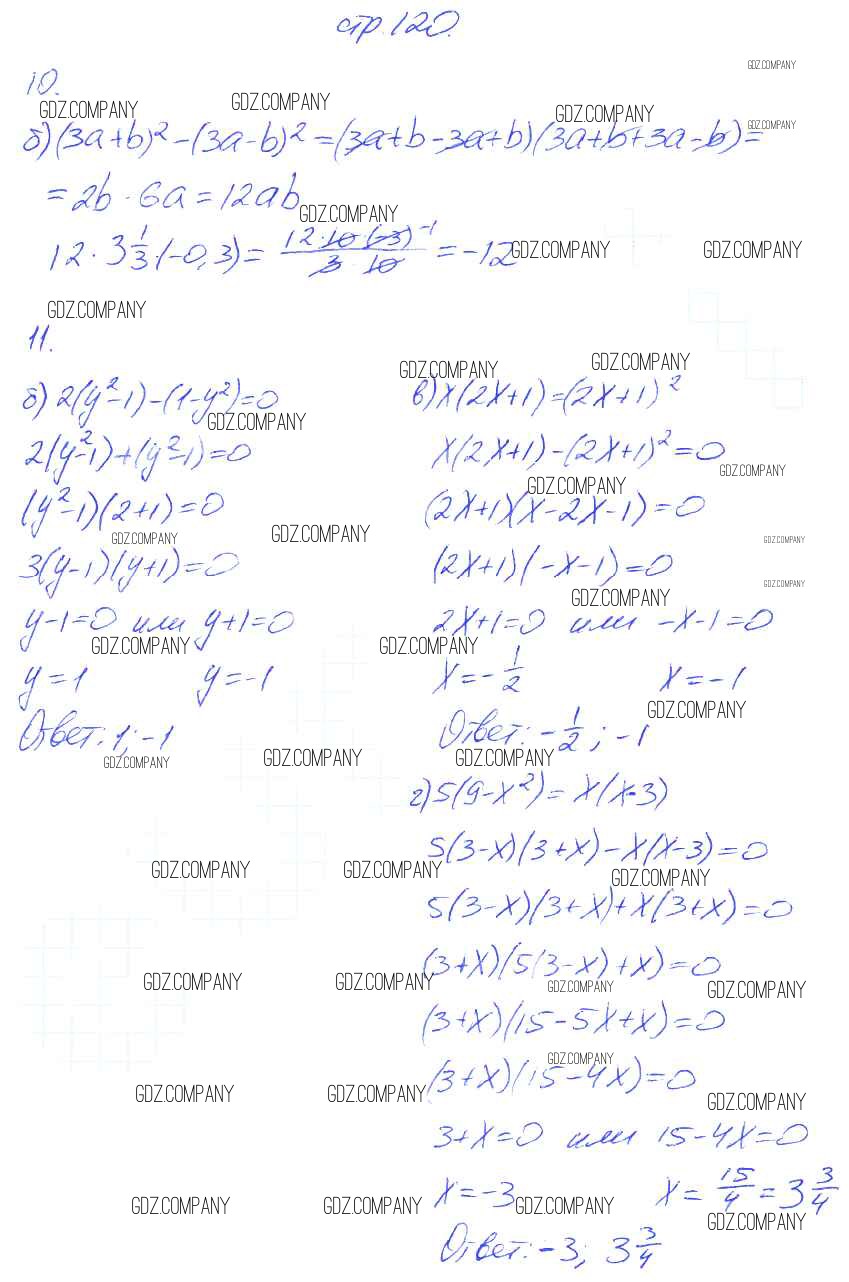 стр. 120.
10.
GDZ.COMPANY
GDZ.COMPANY
GDZ.COMPANY
GDZ.COMPANY
GDZ.COMPANY
б) (3a+b)² - (3a-b)² = (3a+b-3a+b)(3a+b+3a-b) =
= 2b · 6a = 12ab
GDZ.COMPANY
12 · 3 1/3 · (-0,3) = (12 · 10 · (-3) ⁻¹)/(3 · 10) = -12
GDZ.COMPANY
GDZ.COMPANY
GDZ.COMPANY
11.
б) 2(y²-1) - (1-y²) = 0
GDZ.COMPANY
2(y²-1) + (y²-1) = 0
(y²-1)(2+1) = 0
GDZ.COMPANY
GDZ.COMPANY
3(y-1)(y+1) = 0
y-1=0 или y+1=0
GDZ.COMPANY
y=1 y=-1
Ответ: 1; -1
GDZ.COMPANY
GDZ.COMPANY
GDZ.COMPANY
GDZ.COMPANY
в) x(2x+1) = (2x+1)²
x(2x+1) - (2x+1)² = 0
GDZ.COMPANY
GDZ.COMPANY
(2x+1)(x-2x-1) = 0
GDZ.COMPANY
(2x+1)(-x-1) = 0
GDZ.COMPANY
GDZ.COMPANY
2x+1=0 или -x-1=0
GDZ.COMPANY
x=-1/2 x=-1
GDZ.COMPANY
Ответ: -1/2; -1
GDZ.COMPANY
г) 5(9-x²) = x(x-3)
5(3-x)(3+x) - x(x-3) = 0
GDZ.COMPANY
GDZ.COMPANY
GDZ.COMPANY
5(3-x)(3+x) + x(3+x) = 0
(3+x)(5(3-x)+x) = 0
GDZ.COMPANY
GDZ.COMPANY
GDZ.COMPANY
GDZ.COMPANY
(3+x)(15-5x+x) = 0
GDZ.COMPANY
(3+x)(15-4x) = 0
GDZ.COMPANY
GDZ.COMPANY
GDZ.COMPANY
3+x=0 или 15-4x=0
x=-3 x=15/4=3 3/4
GDZ.COMPANY
GDZ.COMPANY
GDZ.COMPANY
GDZ.COMPANY
Ответ: -3; 3 3/4